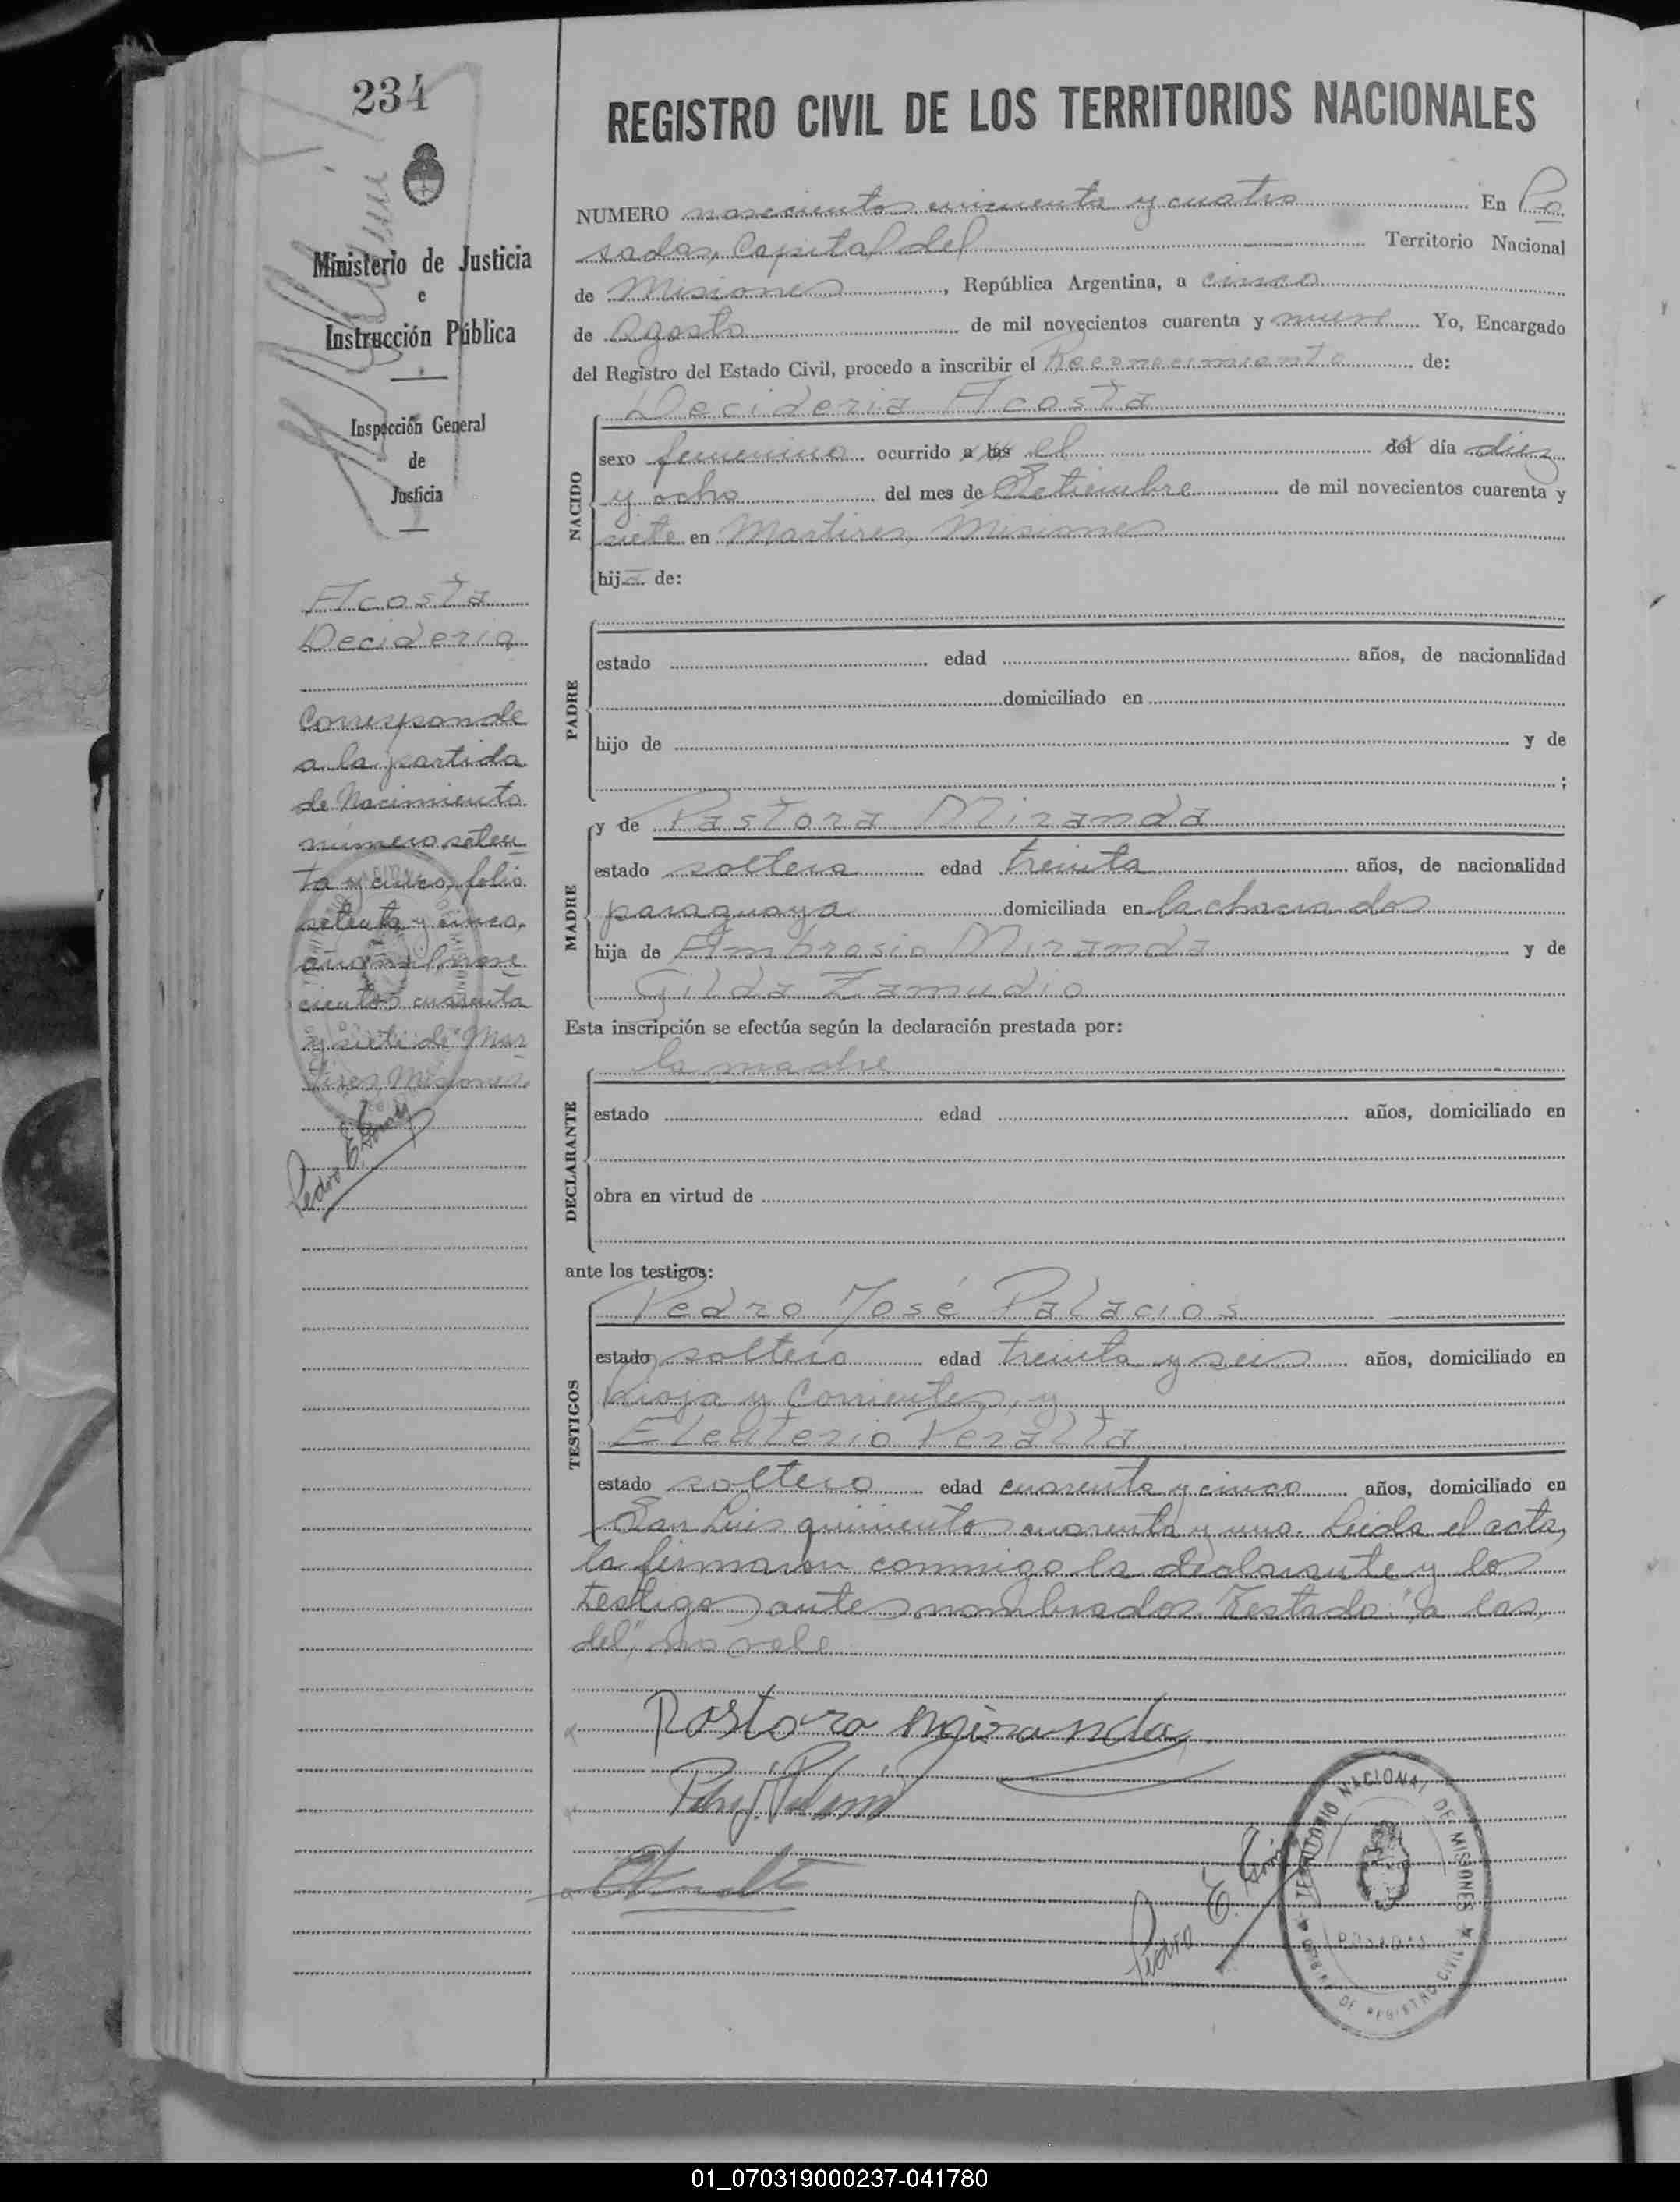 234
Ministerio de Justicia
e
Instrucción Pública
Inspección General
de
Justicia
Acosta
Decideria
Corresponde
a la partida
de Nacimiento
número seten
ta y cinco, folio
setenta y cinco,
año mil nove
cientos cuarenta
y siete de Mar
tires, Misiones.
REGISTRO CIVIL DE LOS TERRITORIOS NACIONALES
NUMERO novecientos cincuenta y cuatro En Po
sadas, Capital del Territorio Nacional
de Misiones, República Argentina, a cinco
de Agosto de mil novecientos cuarenta y nueve Yo, Encargado
del Registro del Estado Civil, procedo a inscribir el Reconocimiento de:
NACIDO
Decideria Acosta
sexo femenino ocurrido a las el del día diez
y ocho del mes de Setiembre de mil novecientos cuarenta y
siete en Martires, Misiones
hija de:
PADRE
estado edad años, de nacionalidad
domiciliado en
hijo de y de
;
MADRE
y de Pastora Miranda
estado soltera edad treinta años, de nacionalidad
paraguaya domiciliada en la chacra dos
hija de Ambrosio Miranda y de
Gilda Zamudio
Esta inscripción se efectúa según la declaración prestada por:
DECLARANTE
la madre
estado edad años, domiciliado en
obra en virtud de
ante los testigos:
TESTIGOS
Pedro José Palacios
estado soltero edad treinta y seis años, domiciliado en
Rioja y Corrientes, y
Eleuterio Peralta
estado soltero edad cuarenta y cinco años, domiciliado en
San Luis quinientos cuarenta y uno. Leida el acta,
la firmaron conmigo la declarante y los
testigos antes nombrados. Testado: "a las,
del", no vale
Pastora Miranda
Pedro E.
TERRITORIO NACIONAL DE MISIONES
POSADAS
DE REGISTRO CIVIL
01_070319000237-041780